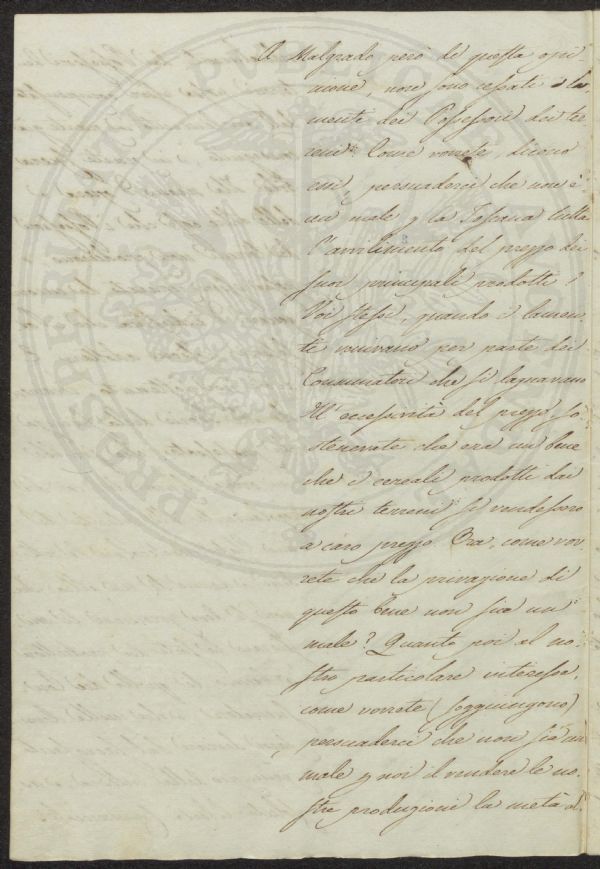 A Malgrado però di questa opi-
nione, non sono cessati i la
mente dei Possessori dei ter
reni. Come vorrete, dicono
essi, persuaderci che non è
un male p la Toscana tutta
l'avvilimento del prezzo dei
suoi principali prodotti?
Voi stessi, quando i lamen
ti venivano per parte dei
Consumatori che si lagnavano
dell'eccessività del prezzo, so-
stenevate che era un bene
che i cereali prodotti dai
nostri terreni si vendessero
a caro prezzo. Ora, come vor
rete che la privazione di
questo bene non sia un
male? Quanto poi al no-
stro particolare interesse,
come vorrete (soggiungono)
persuaderci che non sia un
male p noi il vendere le no
stre produzioni la metà d.
PROSPERITATI PUBLICAE